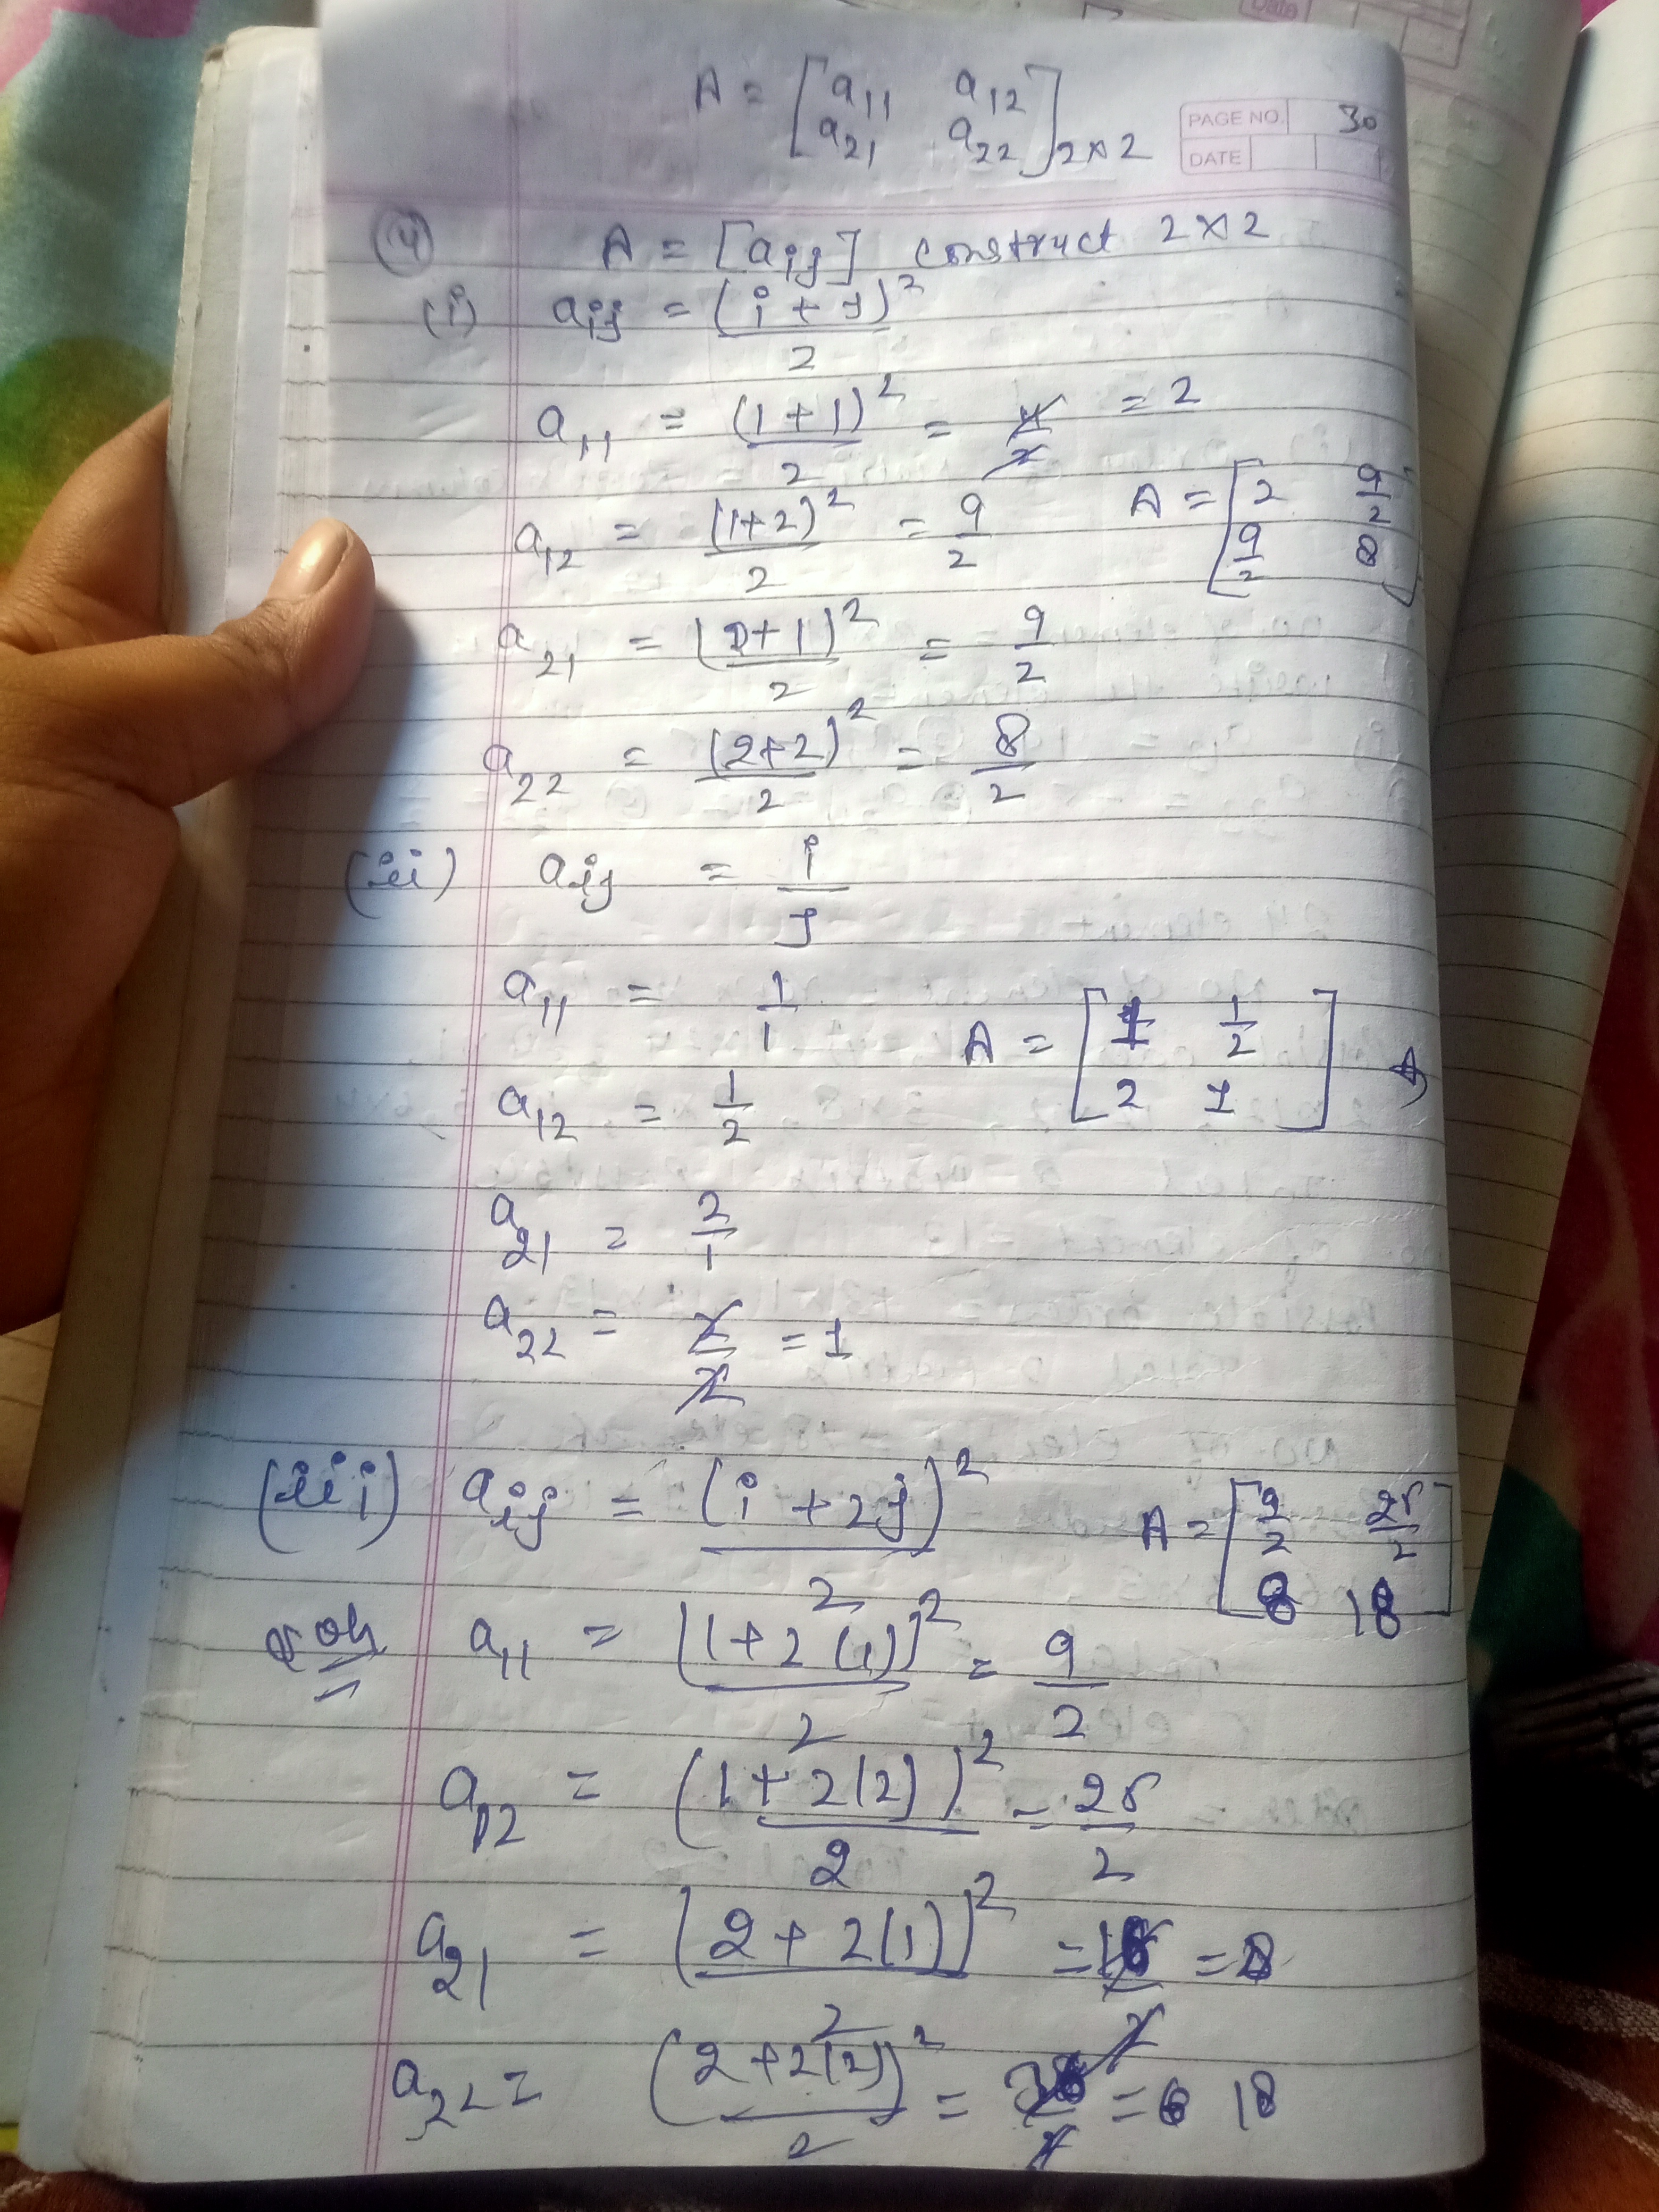 A = [a11 a12
a21 a22]2×2
PAGE NO. 30
DATE
(4) A = [aij] construct 2×2
(i) aij = (i + j)²/2
a11 = (1+1)²/2 = 4/2 = 2
a12 = (1+2)²/2 = 9/2
A = [2 9/2
9/2 8]
a21 = (2+1)²/2 = 9/2
a22 = (2+2)²/2 = 8/2
(ii) aij = i/j
a11 = 1/1
A = [1 1/2
2 1]
a12 = 1/2
a21 = 2/1
a22 = 2/2 = 1
(iii) aij = (i + 2j)²/2
A = [9/2 25/2
8 18]
soln a11 = (1+2(1))²/2 = 9/2
a12 = (1+2(2))²/2 = 25/2
a21 = (2+2(1))²/2 = 16/2 = 8
a22 = (2+2(2))²/2 = 36/2 = 18